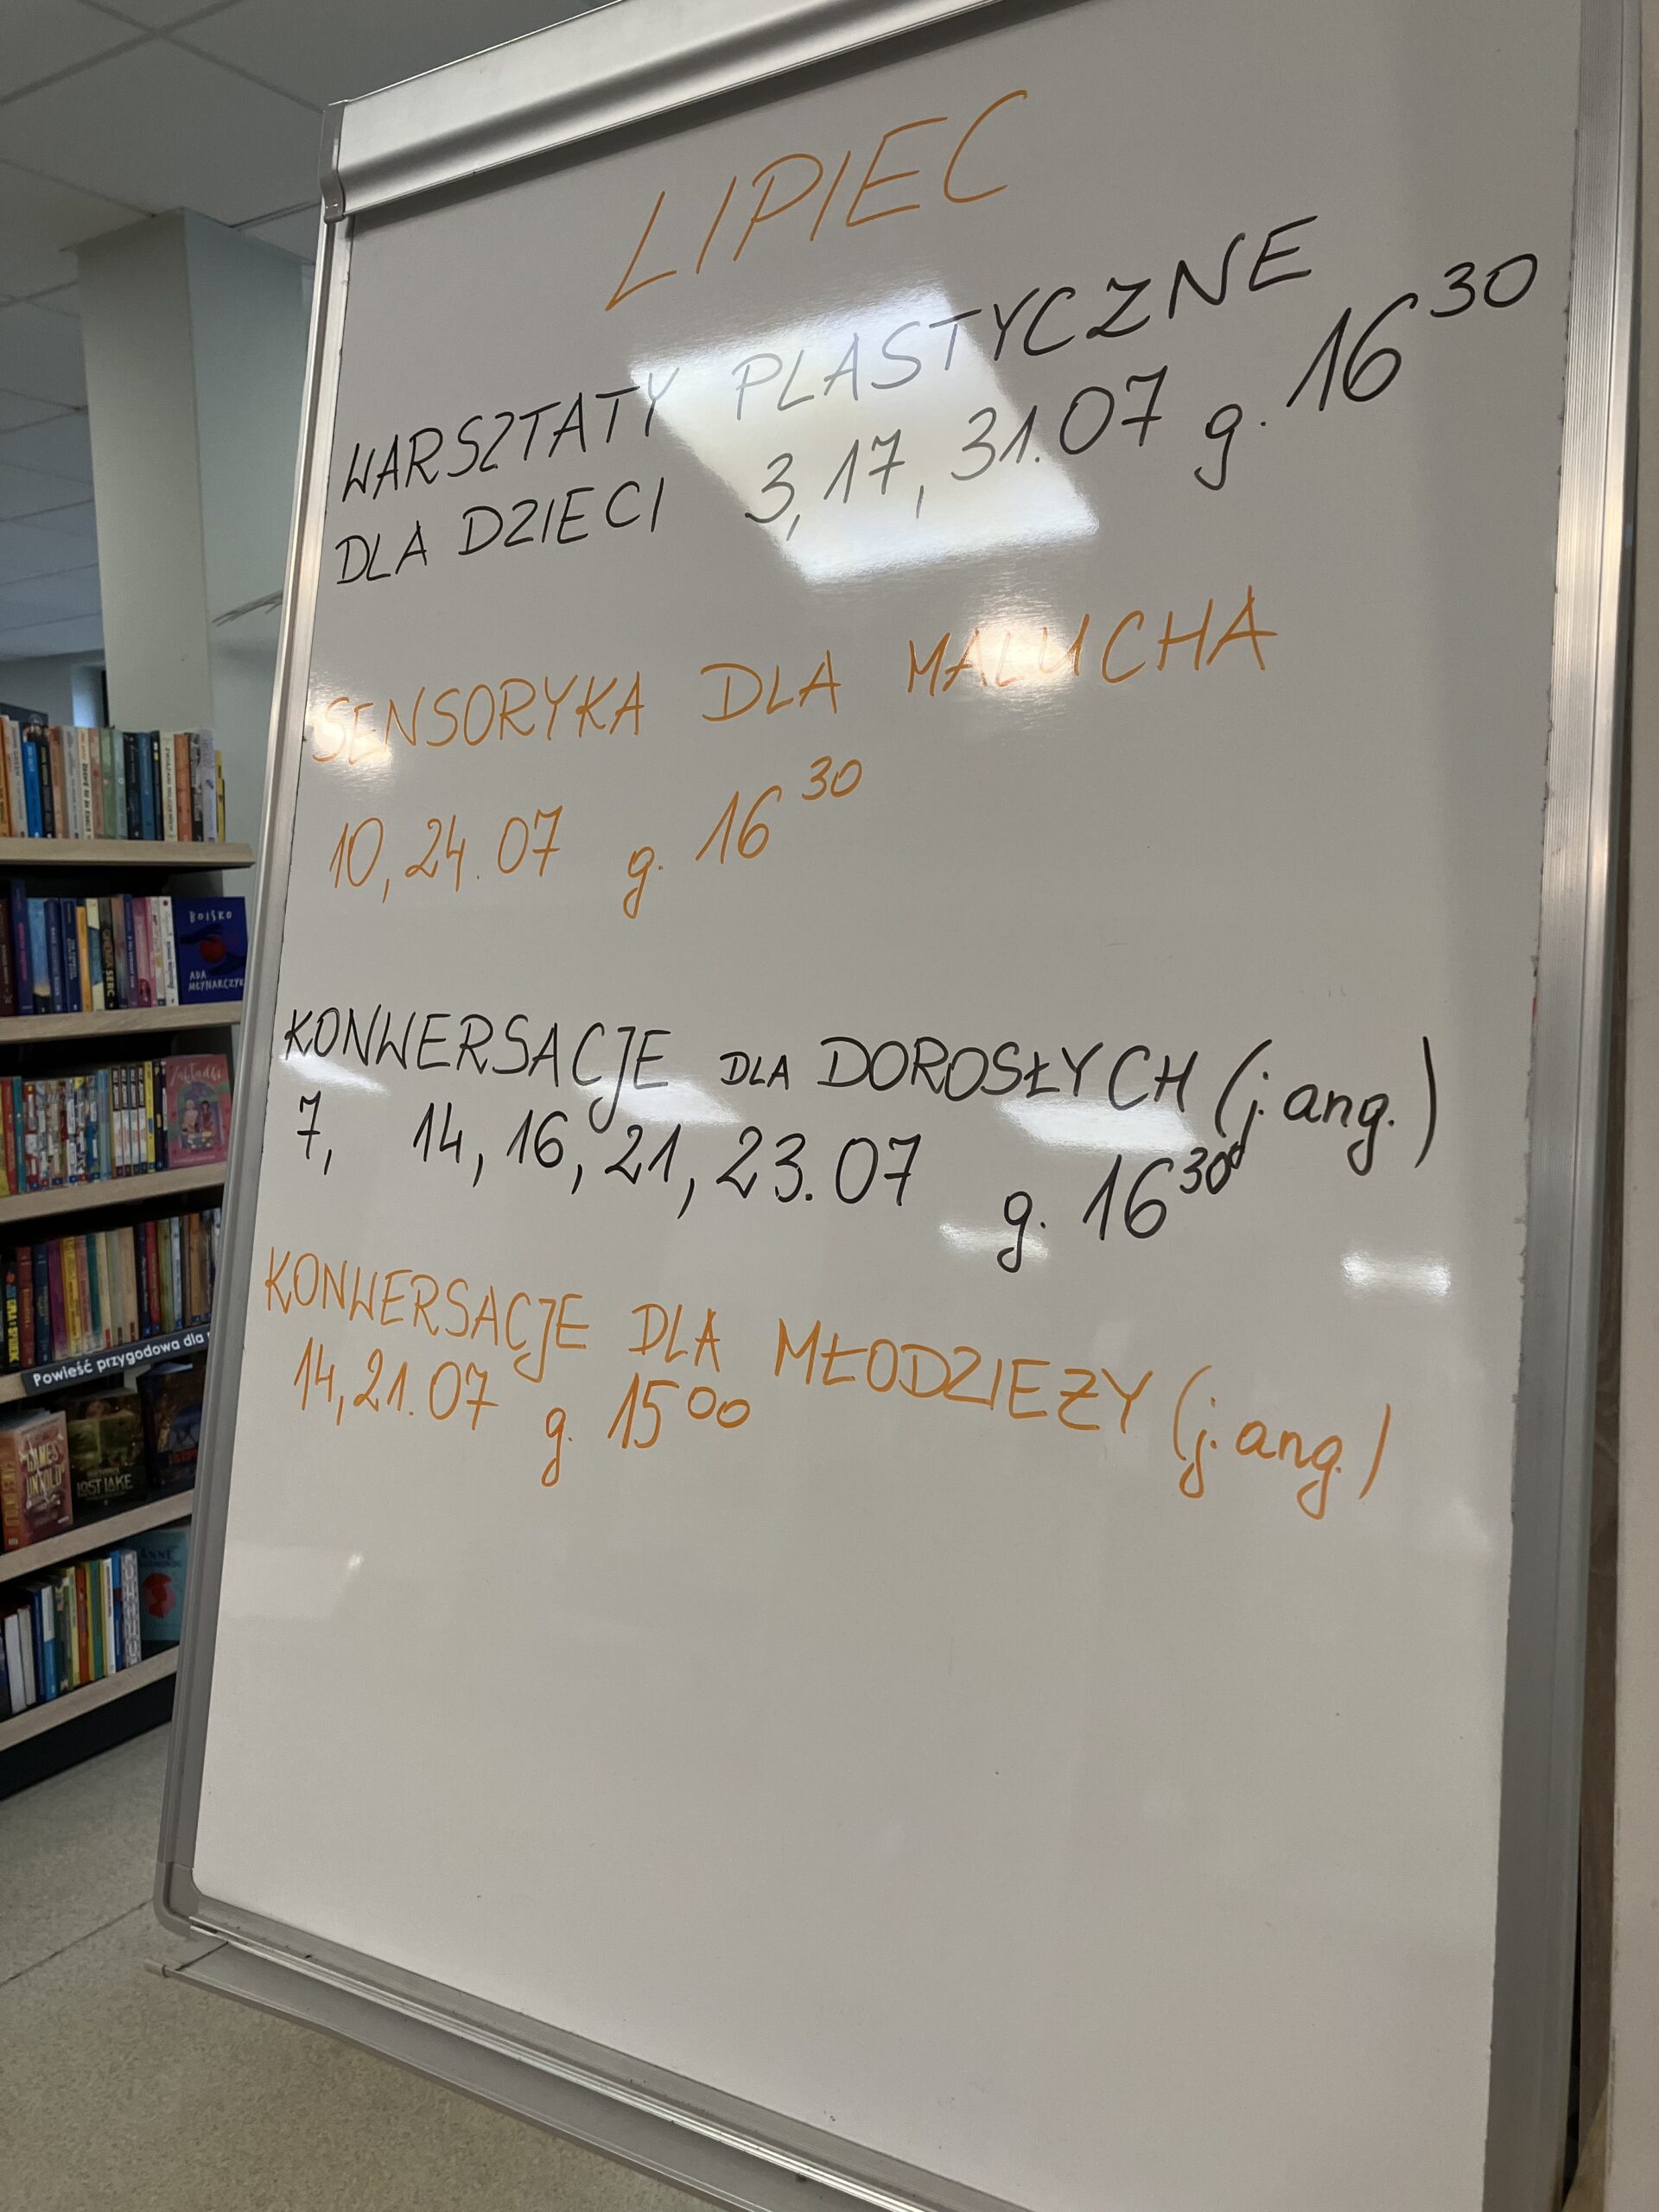 LIPIEC
WARSZTATY PLASTYCZNE
DLA DZIECI 3, 17, 31.07 g. 16³⁰
SENSORYKA DLA MALUCHA
10, 24.07 g. 16³⁰
KONWERSACJE DLA DOROSŁYCH (j. ang.)
7, 14, 16, 21, 23.07 g. 16³⁰
KONWERSACJE DLA MŁODZIEŻY (j. ang.)
14, 21.07 g. 15⁰⁰
BOISKO
ADA
MŁYNARCZYK
Zakładki
Powieść przygodowa dla
LOST LAKE